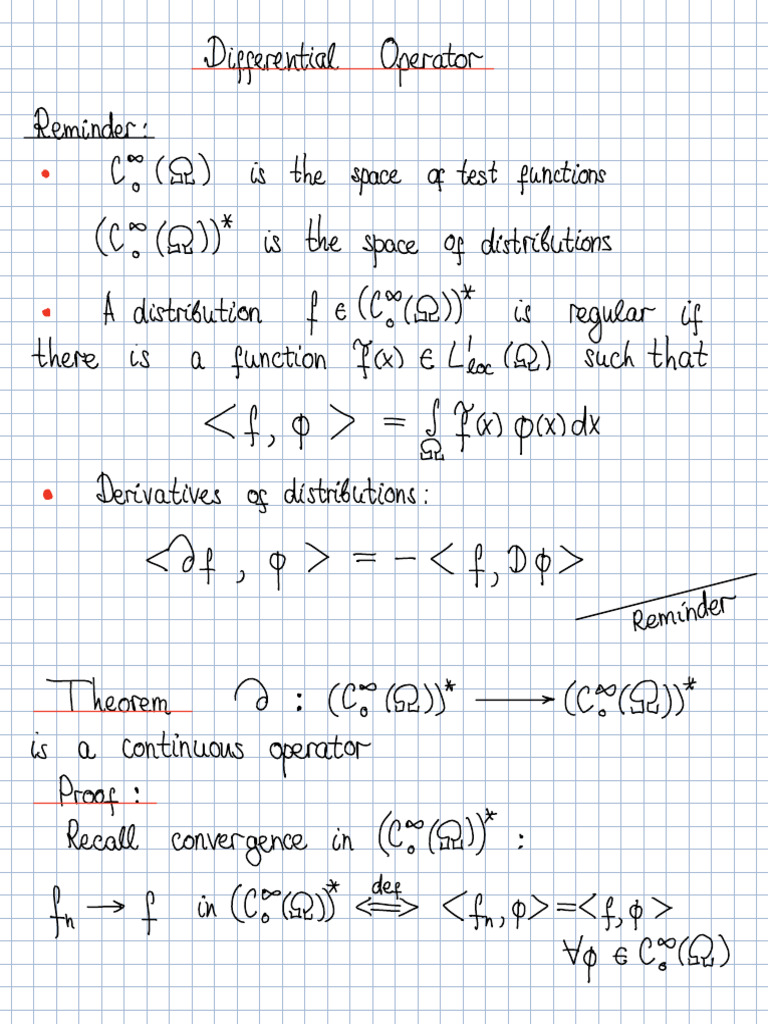 Differential Operator
Reminder:
• C₀^∞(Ω) is the space of test functions
(C₀^∞(Ω))* is the space of distributions
• A distribution f ∈ (C₀^∞(Ω))* is regular if
there is a function f̃(x) ∈ L¹_loc(Ω) such that
<f, φ> = ∫_Ω f̃(x) φ(x)dx
• Derivatives of distributions:
<∂f, φ> = - <f, Dφ>
Reminder
Theorem ∂ : (C₀^∞(Ω))* ⟶ (C₀^∞(Ω))*
is a continuous operator
Proof:
Recall convergence in (C₀^∞(Ω))* :
fₙ → f in (C₀^∞(Ω))* ⟺^def <fₙ, φ> = <f, φ>
∀φ ∈ C₀^∞(Ω)